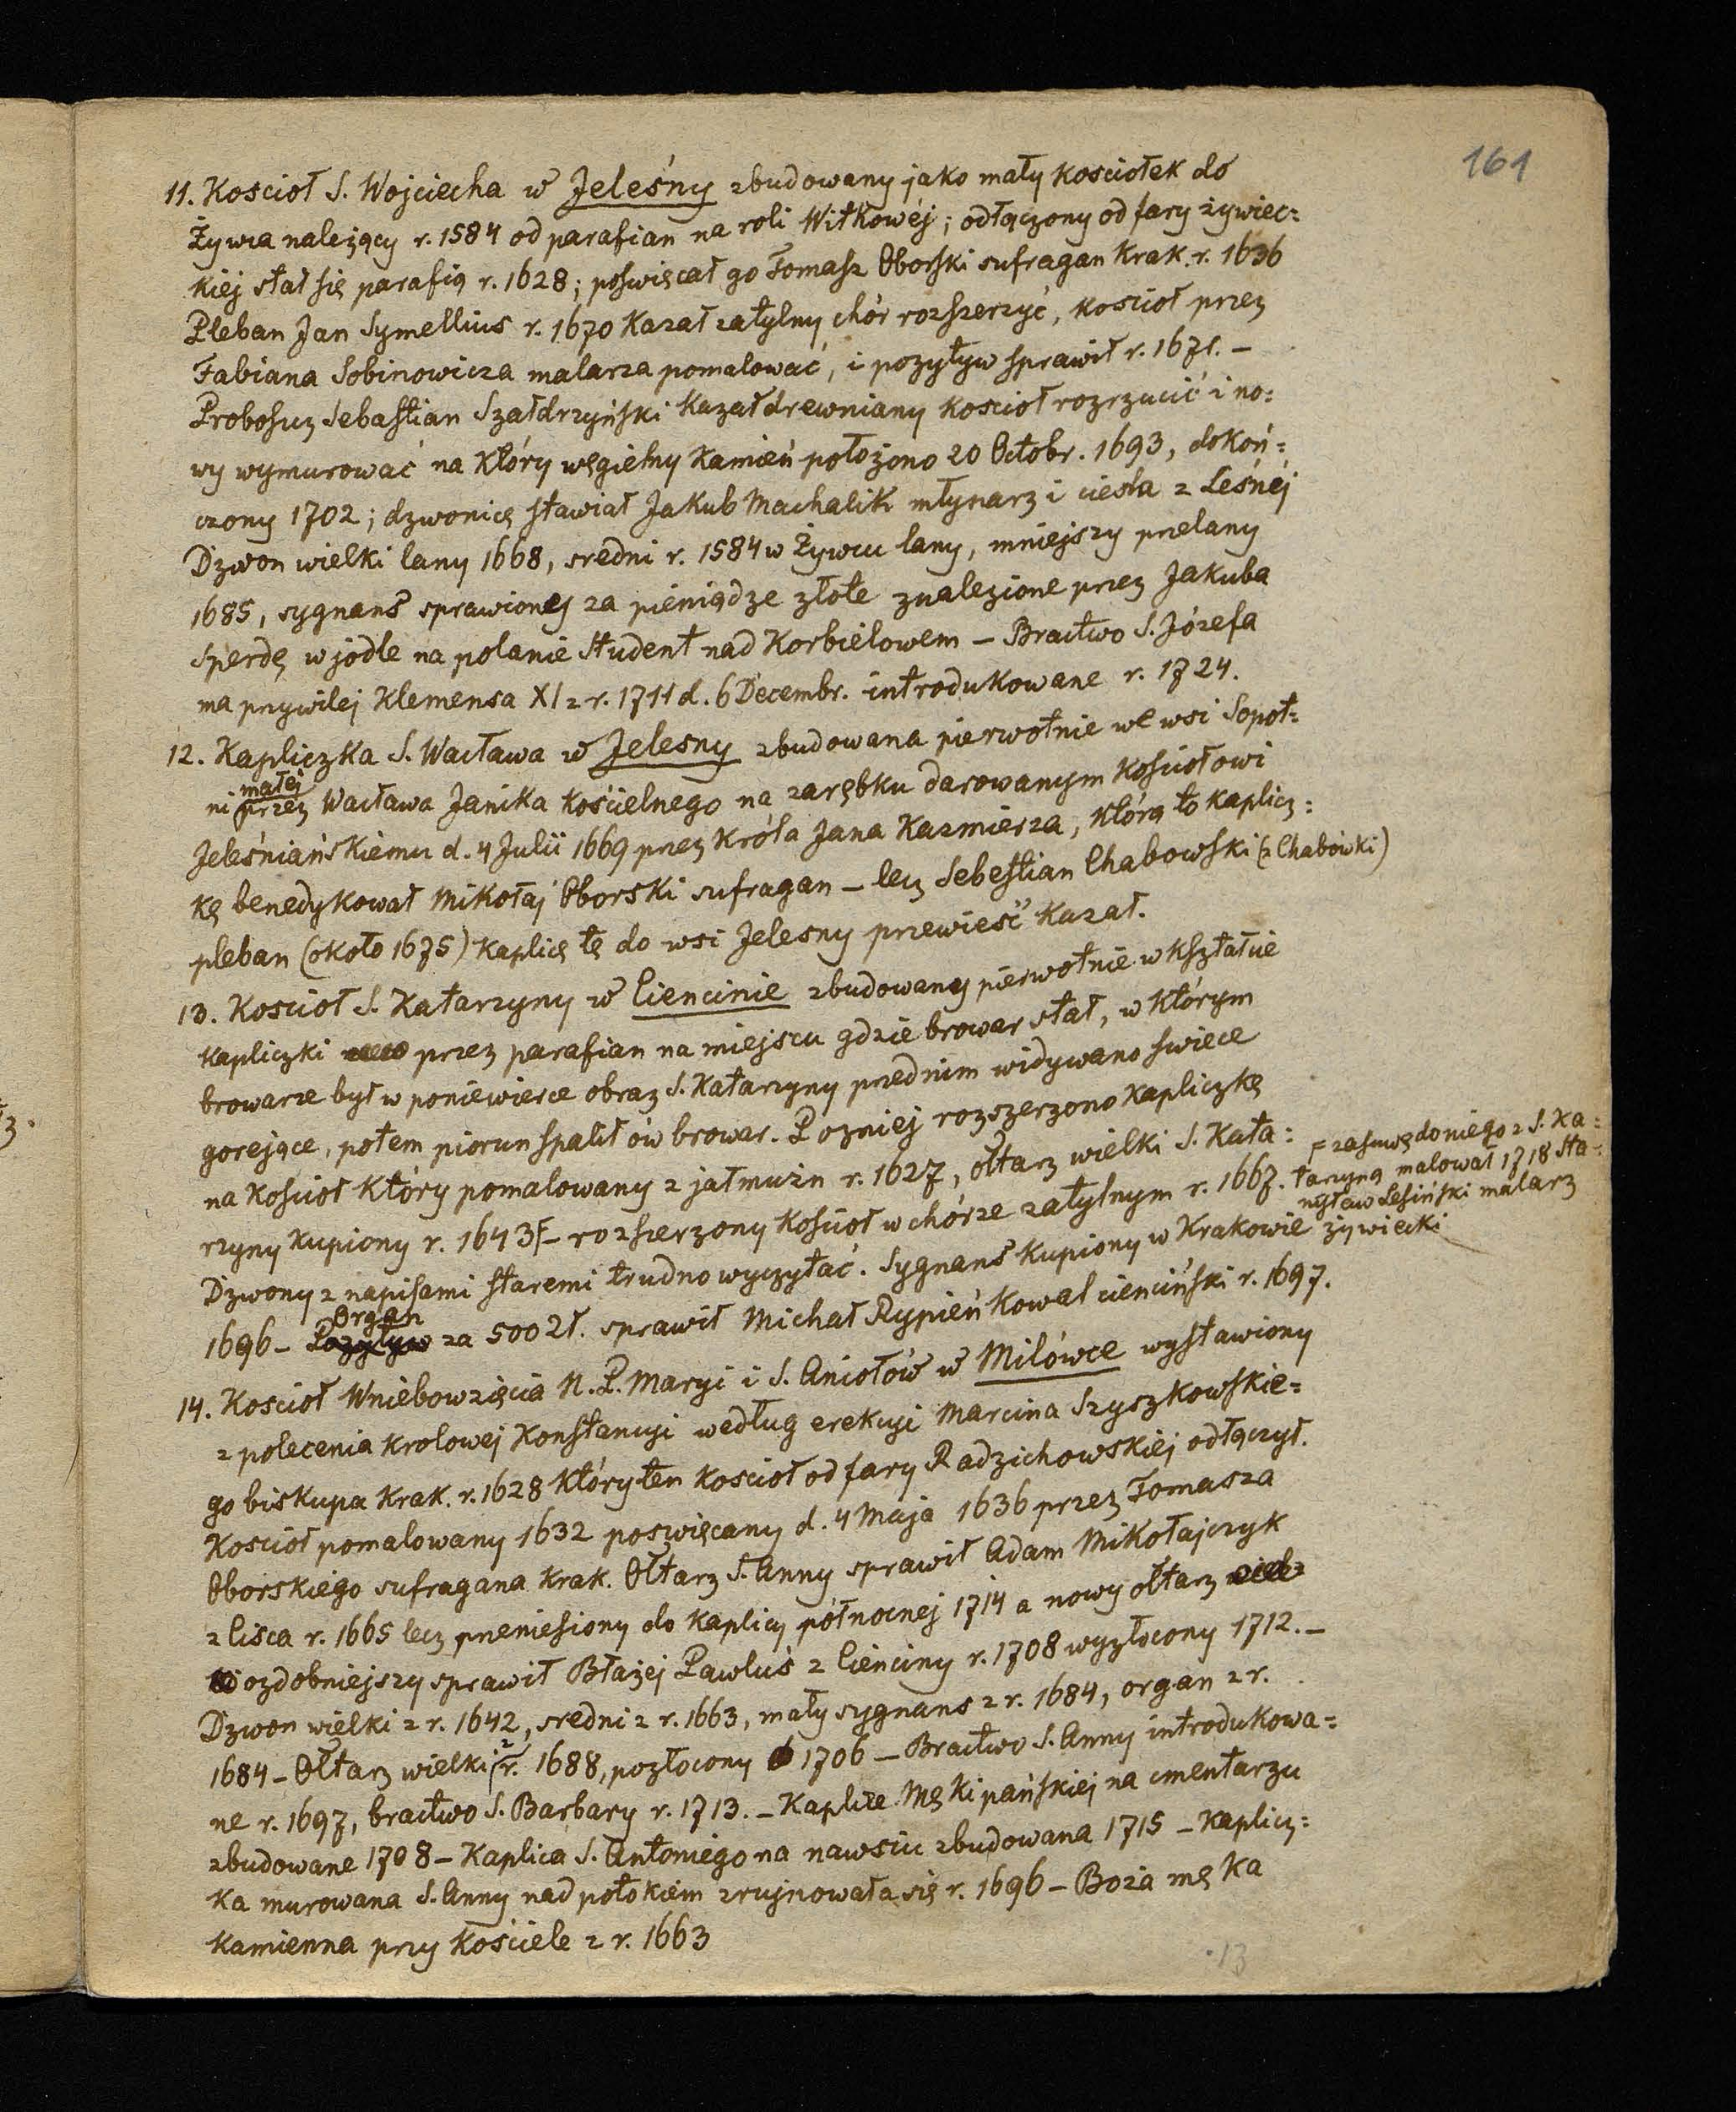 161
11. Kościoł S. Wojciecha w Jeleśny zbudowany jako mały kosciołek do
Żywca należący r. 1584 od parafian na roli Witkowéj; odłączony od fary żywiec=
kiej stał się parafią r. 1628; poswięcał go Tomasz Oborski sufragan Krak. r. 1636
Pleban Jan Symellius r. 1670 Kazał zatylny chór rozszerzyć, kościoł przez
Fabiana Sobinowicza malarza pomalować, i pozytyw sprawił r. 1671. –
Proboszcz Sebastian Szałdrzyński Kazał drewniany kościoł rozrzucić i no=
wy wymurować na który węgielny Kamień położono 20 Octobr. 1693, dokoń=
czony 1702; dzwonicę stawiał Jakub Machalik młynarz i ciesla z Leśnéj
Dzwon wielki lany 1668, sredni r. 1584 w Żywcu lany, mniejszy przelany
1685, sygnans sprawiony za pieniądze złote znalezione przez Jakuba
Sperdę w jodle na polanie Student nad Korbielowem – Bractwo S. Józefa
ma przywilej Klemensa XI z r. 1711 d. 6 Decembr. introdukowane r. 1724.
12. Kapliczka S. Wacława w Jelesny zbudowana pierwotnie we wsi Sopot=
ni małej przez Wacława Janika kościelnego na zarębku darowanym kościołowi
Jeleśniańskiemu d. 4 Julii 1669 przez Króla Jana Kazmierza, którą to kaplicz=
kę benedykował Mikołaj Oborski sufragan – lecz Sebestian Chabowski (z Chabówki)
pleban (około 1675) kaplicę tę do wsi Jelesny przewieść kazał.
13. Kościoł S. Katarzyny w Ciencinie zbudowany pierwotnie w kształcie
kapliczki przez parafian na miejscu gdzie browar stał, w którym
browarze był w poniewierce obraz S. Katarzyny przednim widywano swiece
gorejące, potem piorun spalił ów browar. Pozniej rozszerzono kapliczkę
na kościoł który pomalowany z jałmużn r. 1627, ołtarz wielki S. Kata=
rzyny kupiony r. 1643 F – rozszerzony kościoł w chórze zatylnym r. 1667.
F zasuwę do niego z S. Ka=
tarzyną malował 1718 Sta=
nisław Lesiński malarz
żywiecki
Dzwony z napisami staremi trudno wyczytać. Sygnans kupiony w Krakowie
1696 – Pozytyw Organ za 500 zł. sprawił Michał Rypień kowal cienciński r. 1697.
14. Kościoł Wniebowzięcia N. P. Maryi i S. Aniołów w Milówce wystawiony
z polecenia krolowej Konstancyi według erekcyi Marcina Szyszkowskie=
go biskupa Krak. r. 1628 który ten kościoł od fary Radzichowskiej odłączył.
Kościoł pomalowany 1632 poswięcany d. 4 Maja 1636 przez Tomasza
Oborskiego sufragana Krak. Ołtarz S. Anny sprawił Adam Mikołajczyk
z Cisca r. 1665 lecz przeniesiony do kaplicy północnej 1714 a nowy ołtarz
ozdobniejszy sprawił Błażej Pawluś z Cienciny r. 1708 wyzłocony 1712. –
Dzwon wielki z r. 1642, sredni z r. 1663, mały sygnans z r. 1684, organ z r.
1684 – Ołtarz wielki z r. 1688, pozłocony 1706 – Bractwo S. Anny introdukowa=
ne r. 1697, bractwo S. Barbary r. 1713. – Kaplice Męki pańskiej na cmentarzu
zbudowane 1708 – Kaplica S. Antoniego na nawsiu zbudowana 1715 – Kaplicz=
ka murowana S. Anny nad potokiem zrujnowała się r. 1696 – Boża męka
kamienna przy kościele z r. 1663
13